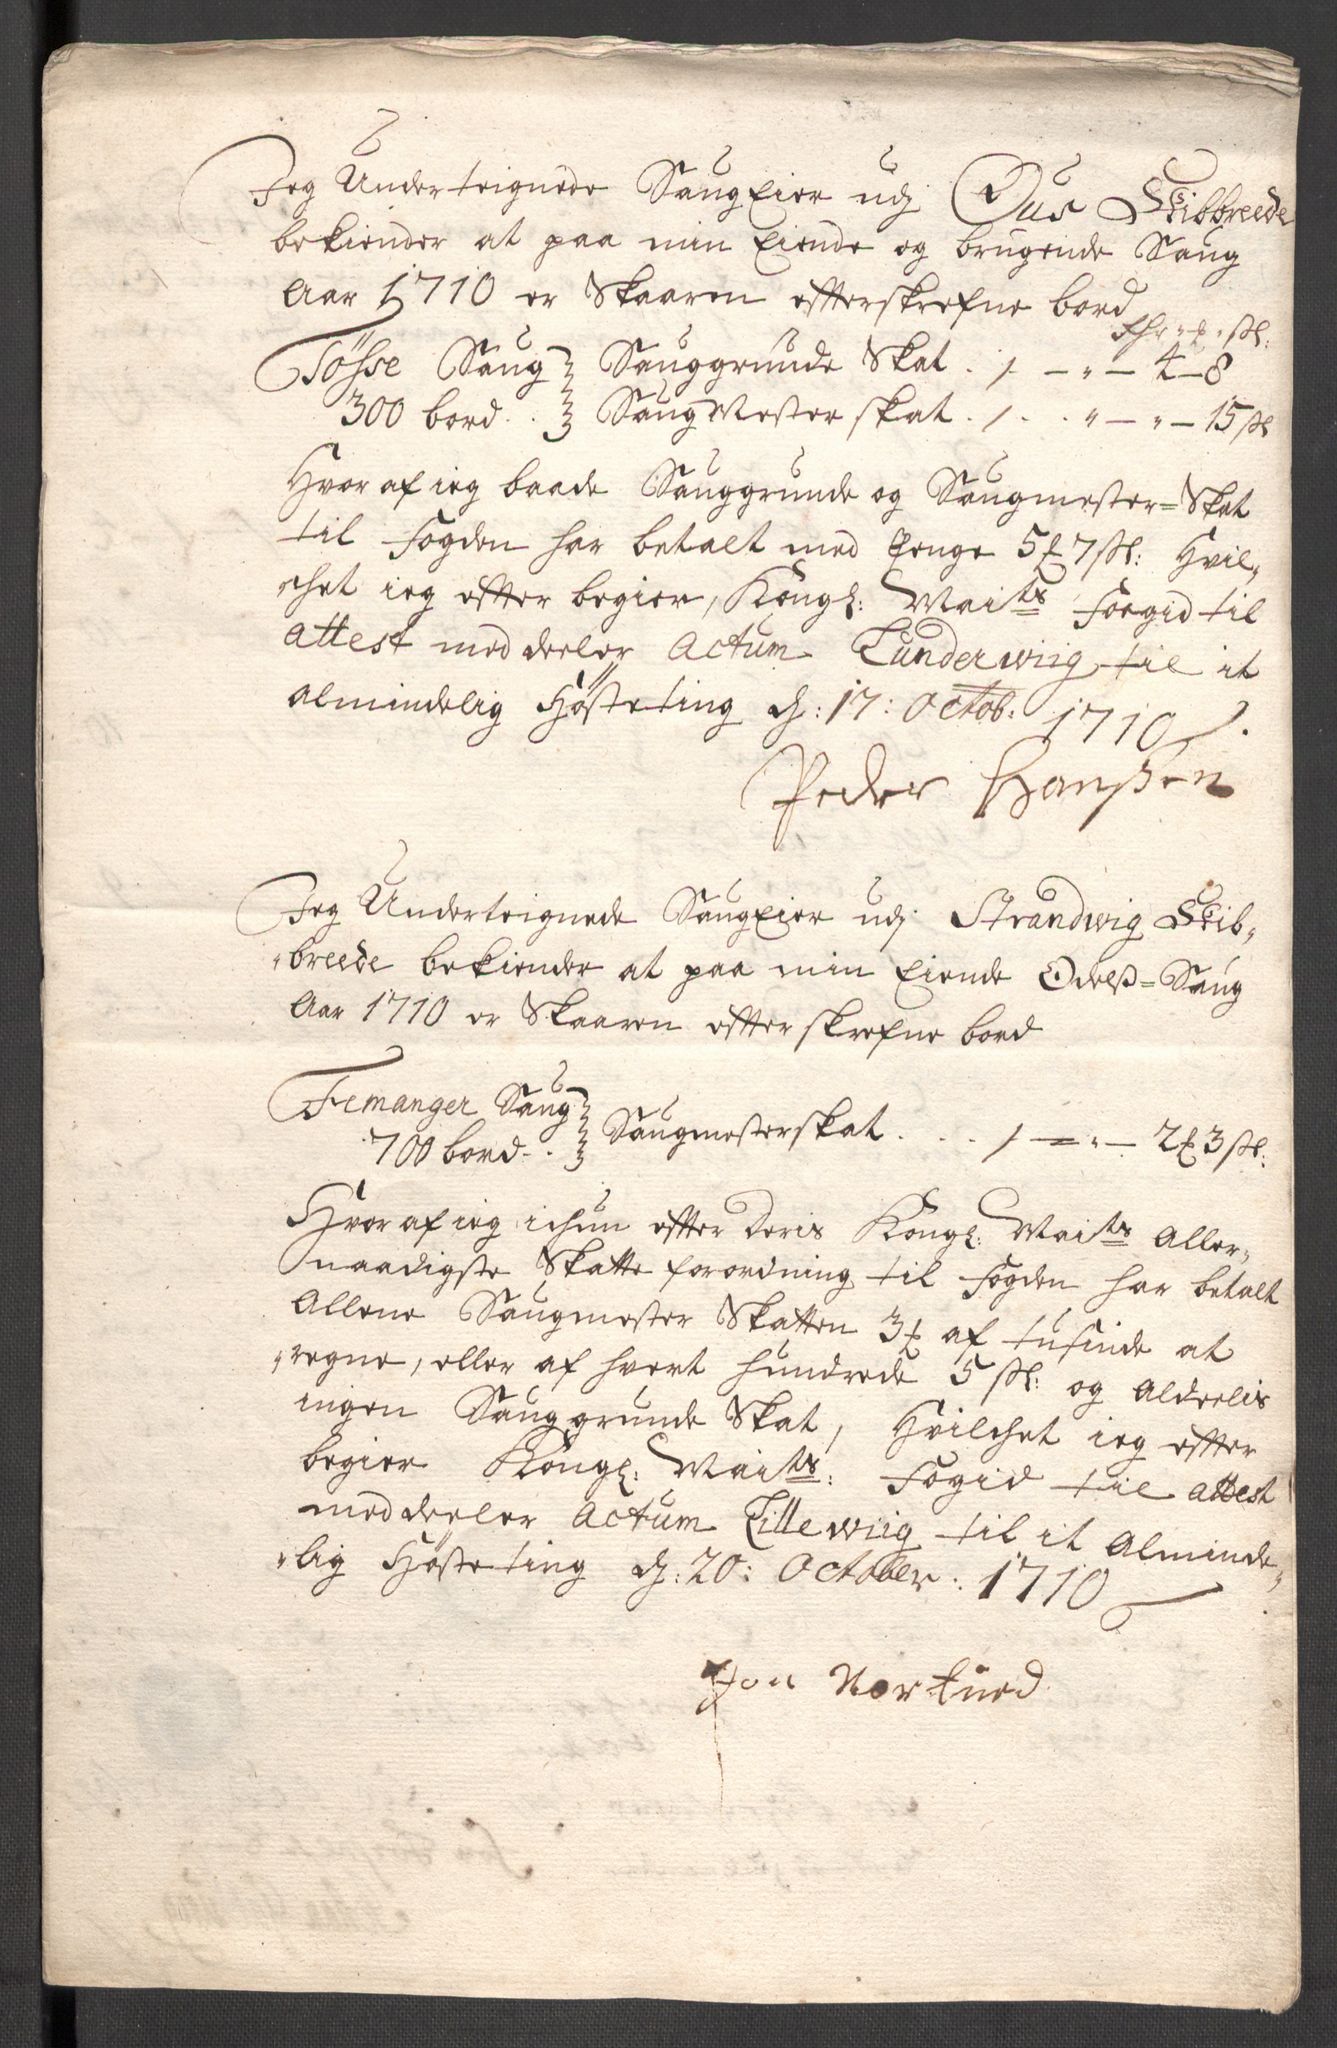 Jeg Underteignede Saugeier udj Ous Skibbreede
bekiender at paa min Eiende og brugende Saug
Aar 1710 er Skaaren efterskrefne bord
Tösse Saug Sauggrunde Skat . / — " — 4 — 8
300 bord . . SaugMester skat . / . . " — " — 15 sk
Hvor af ieg baade Sauggrunde og Saugmester=Skat
til Fogden har betalt med Penge 5 ƺ 7 sk: Hvil,
,chet ieg efter begier, Kongl: Maits Foegid til
Attest meddeeler Actum Lunderwiig til it
Almindelig Hösteting d: 17: Octob: 1710
Peder Hanssen
Jeg Underteignede Saugeier udj Strandwig Skib,
,breede bekiender at paa min Eiende Odelss=Saug
Aar 1710 er Skaaren efterskrefne bord
Femanger Saug
700 bord . . Saugmesterskat . . . / — " — 2 ƺ 3 sk:
Hvor af ieg ichun efter Deris Kongl: Maits Aller,
naadigste Skatte forordning til Fogden har betalt
Allene Saugmester Skatten 3 ƺ af tusinde at
,regne, eller af hvert hundrede 5 sk: og Aldeelis
ingen Sauggrunde Skat, Hvilchet ieg efter
begier Kongl: Maits: Fogid til attest
meddeeler Actum Lillewiig til it Alminde,
,lig Hösteting d: 20: October: 1710
Jon Nortued